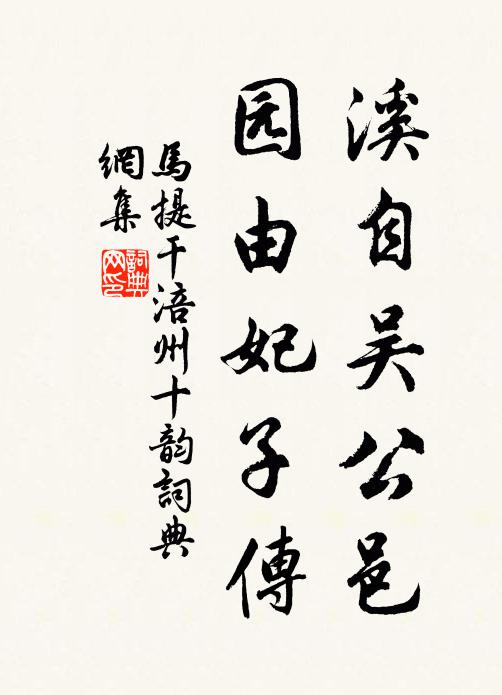 溪自吴公邑
园由妃子傳
馬提干涪州十韵詞典
網集
詞典网印